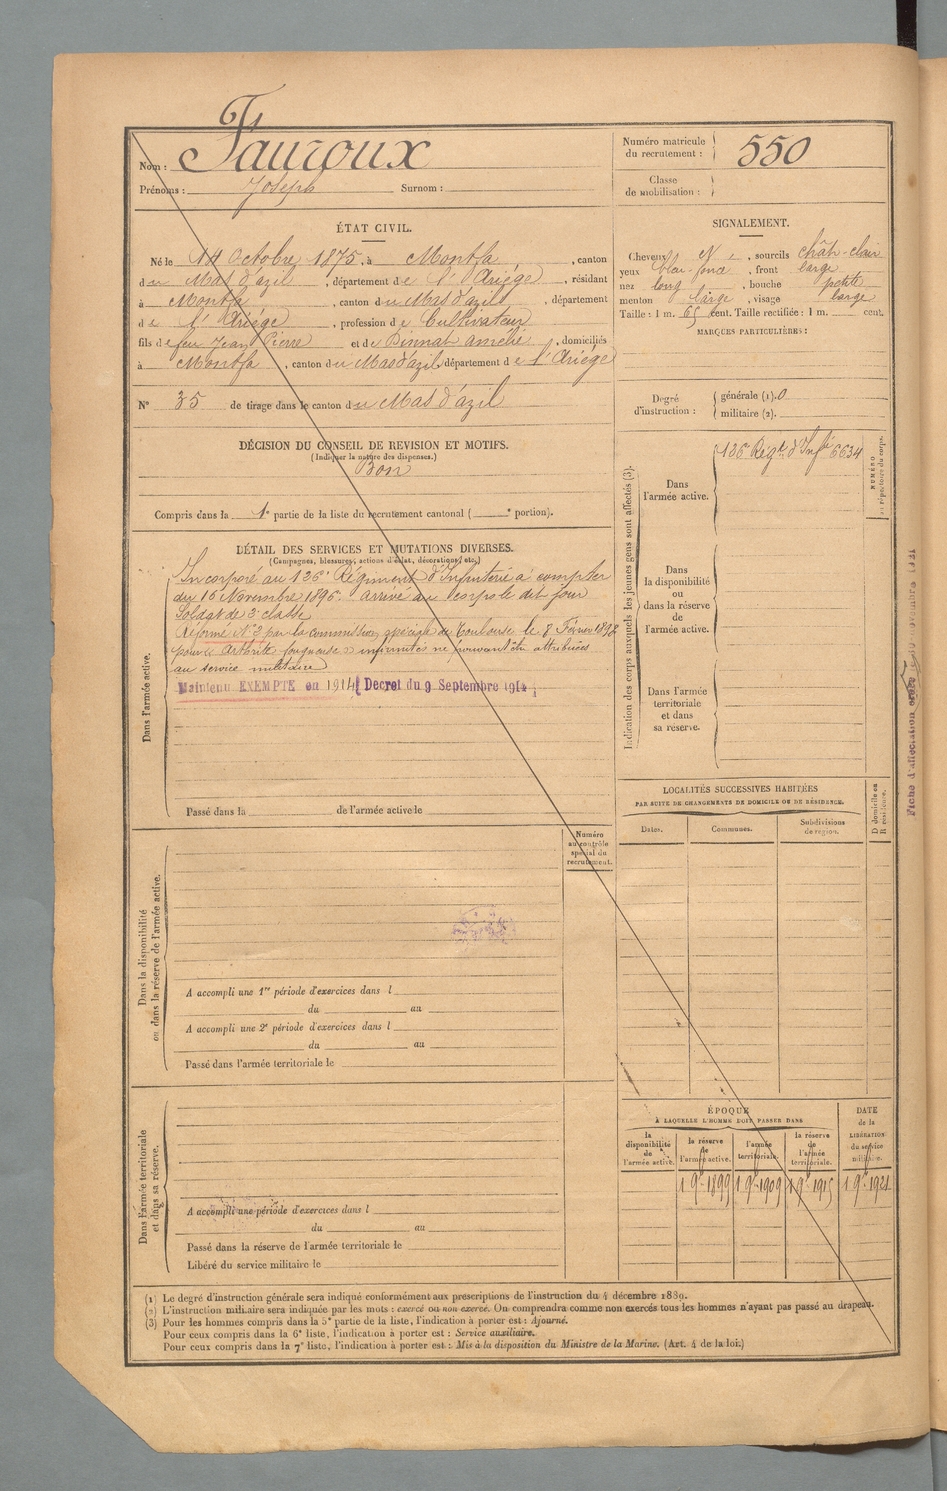 Nom : Fauroux
Prénoms : Joseph Surnom :
Numéro matricule du recrutement : 550
Classe de mobilisation :
ÉTAT CIVIL.
Né le 14 Octobre 1875, à Montfa, canton
du Mas d'azil, département de l'Ariège, résidant
à Montfa, canton du Mas d'azil, département
de l'Ariège, profession de Cultivateur
fils de feu Jean Pierre et de, domiciliés
à Montfa, canton du Mas d'azil, département de l'Ariège
N° 35 de tirage dans le canton du Mas d'azil
DÉCISION DU CONSEIL DE REVISION ET MOTIFS.
(Indiquer la nature des dispenses.)
Bon
Compris dans la 1e partie de la liste du recrutement cantonal ( e portion).
SIGNALEMENT.
Cheveux N, sourcils chât-clair
yeux bleu foncé, front large
nez long, bouche petite
menton large, visage large
Taille : 1 m. 65 cent. Taille rectifiée : 1 m. cent.
MARQUES PARTICULIÈRES :
Degré d'instruction : générale (1). 0
militaire (2).
DÉTAIL DES SERVICES ET MUTATIONS DIVERSES.
(Campagnes, blessures, actions d'éclat, décorations, etc.)
Dans l'armée active.
Incorporé au 126e Régiment d'Infanterie à compter
du 16 Novembre 1896. arrivé au corps le dit jour
Soldat de 2e classe
Réformé N° 2 par la commission spéciale de Toulouse le 8 Février 1898
pour « Arthrite fongueuse » infirmités ne pouvant être attribuées
au service militaire
Maintenu EXEMPTE en 1914 Decret du 9 Septembre 1914
Passé dans la de l'armée active le
Indication des corps auxquels les jeunes gens sont affectés (3).
Dans l'armée active.
126 Régt d'Infie 6634
NUMÉRO au répertoire du corps.
Dans la disponibilité ou dans la réserve de l'armée active.
Dans l'armée territoriale et dans sa réserve.
LOCALITÉS SUCCESSIVES HABITÉES
PAR SUITE DE CHANGEMENTS DE DOMICILE OU DE RÉSIDENCE.
Dates. Communes. Subdivisions de région. D domicile ou R résidence.
Numéro au contrôle spécial du recrutement.
Dans la disponibilité ou dans la réserve de l'armée active.
A accompli une 1re période d'exercices dans l
du au
A accompli une 2e période d'exercices dans l
du au
Passé dans l'armée territoriale le
Dans l'armée territoriale et dans sa réserve.
A accompli une période d'exercices dans l
du au
Passé dans la réserve de l'armée territoriale le
Libéré du service militaire le
ÉPOQUE
À LAQUELLE L'HOMME DOIT PASSER DANS
la disponibilité de l'armée active. la réserve de l'armée active. l'armée territoriale. la réserve de l'armée territoriale.
DATE de la LIBÉRATION du service militaire.
1 9e 1899 1 9e 1909 1 9e 1915 1 9e 1921
(1) Le degré d'instruction générale sera indiqué conformément aux prescriptions de l'instruction du 4 décembre 1889.
(2) L'instruction militaire sera indiquée par les mots : exercé ou non exercé. On comprendra comme non exercés tous les hommes n'ayant pas passé au drapeau.
(3) Pour les hommes compris dans la 5e partie de la liste, l'indication à porter est : Ajourné.
Pour ceux compris dans la 6e liste, l'indication à porter est : Service auxiliaire.
Pour ceux compris dans la 7e liste, l'indication à porter est : Mis à la disposition du Ministre de la Marine. (Art. 4 de la loi.)